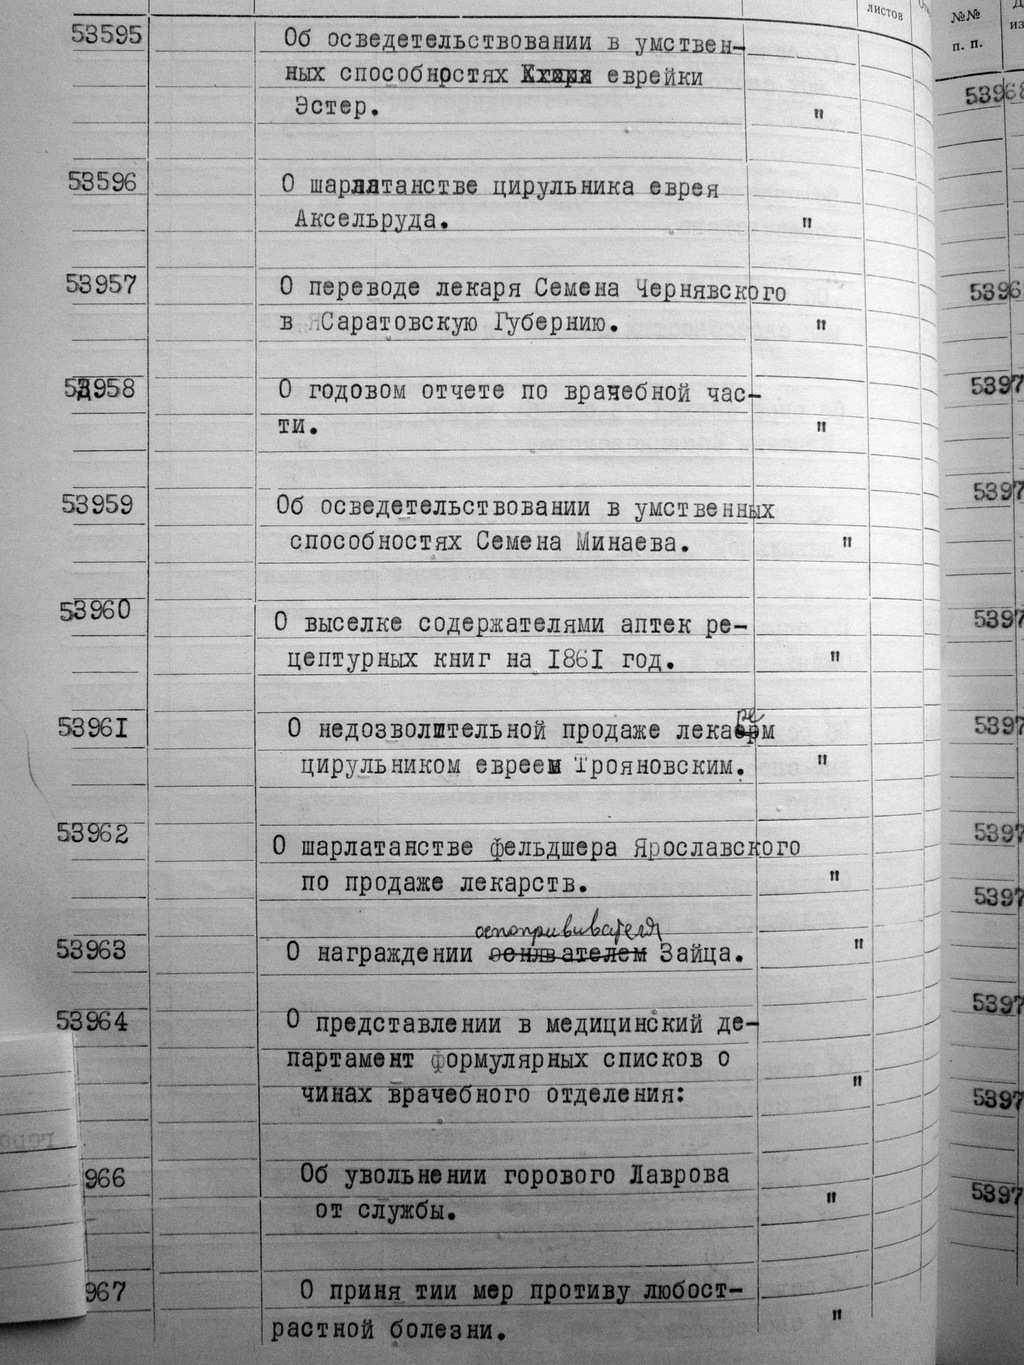 листов
№№
п. п.
53595 Об осведетельствовании в умствен-
ных способностях еврейки
Эстер. "
53596 О шарлатанстве цирульника еврея
Аксельруда. "
53957 О переводе лекаря Семена Чернявского
в Саратовскую Губернию. "
53958 О годовом отчете по врачебной час-
ти. "
53959 Об осведетельствовании в умственных
способностях Семена Минаева. "
53960 О выселке содержателями аптек ре-
цептурных книг на 1861 год. "
53961 О недозволительной продаже
цирульником евреем Трояновским. "
53962 О шарлатанстве фельдшера Ярославского
по продаже лекарств. "
оспопрививателя
53963 О награждении Зайца. "
53964 О представлении в медицинский де-
партамент формулярных списков о
чинах врачебного отделения: "
966 Об увольнении горового Лаврова
от службы. "
967 О приня тии мер противу любост-
растной болезни. "
5396
5397
5397
5397
5397
5397
5397
5397
5397
5397